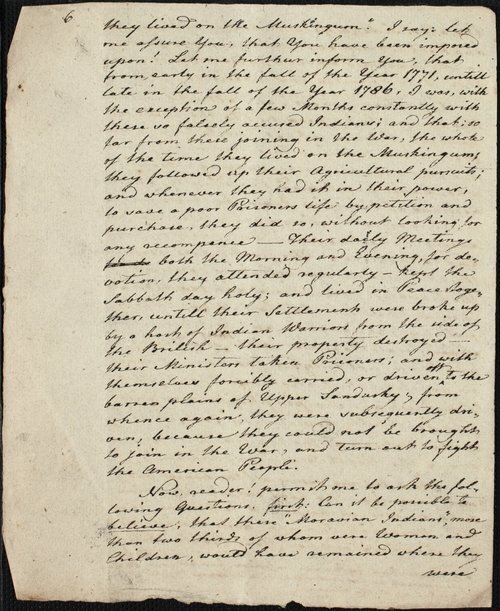 6
they lived on the Muskingum." I say: let
me assure You, that You have been imposed
upon! Let me further inform You, that
from early in the fall of the Year 1771, untill
late in the fall of the Year 1786, I was, with
the exception of a few Months constantly with
these so falsely accused Indians; and that; so
far from these joining in the War, the whole
of the time they lived on the Muskingum;
they followed up their Agricultural pursuits;
and whenever they had it in their power,
to save a poor Prisoners life by petition and
purchase, they did so, without looking for
any recompence — Their daily Meetings
both the Morning and Evening, for de-
votion, they attended regularly — kept the
Sabbath day holy; and lived in Peace toge-
ther, untill their Settlements were broke up
by a host of Indian Warriors from the side of
the British — their property destroyed —
their Ministers taken Prisoners; and with
themselves forcibly carried, or driven off to the
barren plains of Upper Sandusky, from
whence again, they were subsequently dri-
ven, because they could not be brought
to join in the War, and turn out to fight
the American People.
Now, reader! permit me to ask the fol-
lowing Questions, first: Can it be possible to
believe, that these "Moravian Indians", more
than two thirds of whom were Women and
Children, would have remained where they
were